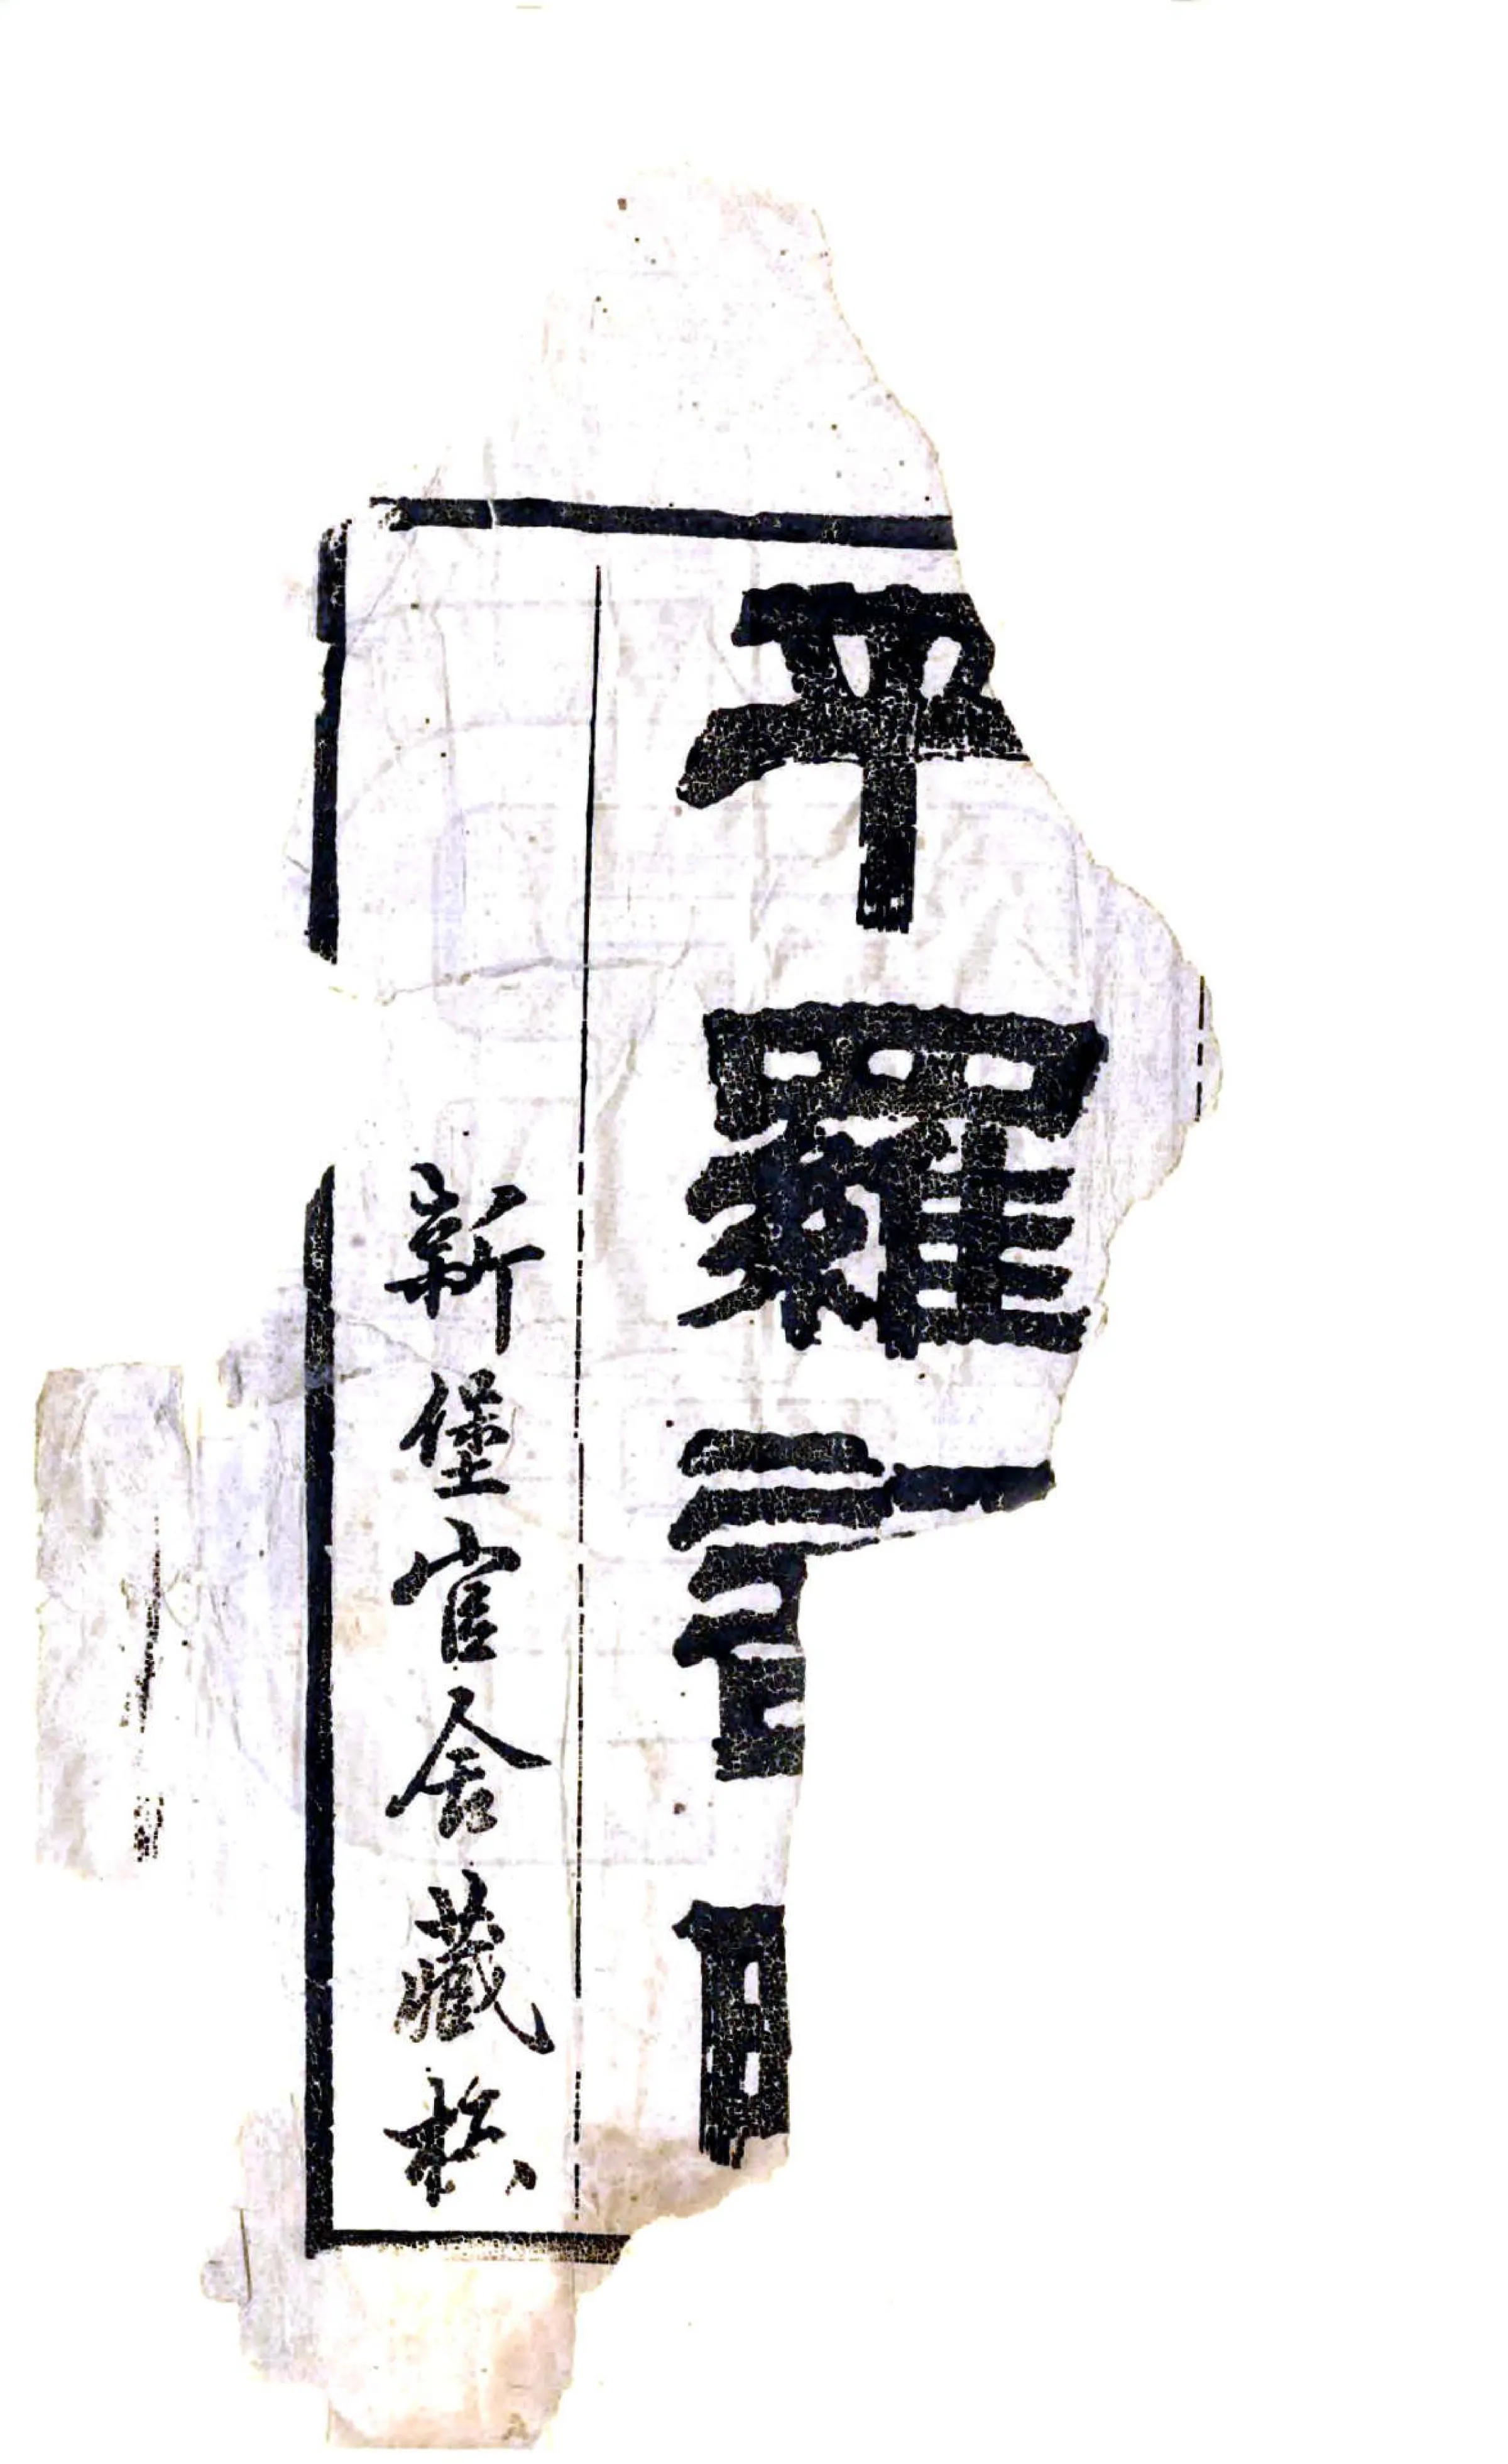 平羅
新堡官舍藏板